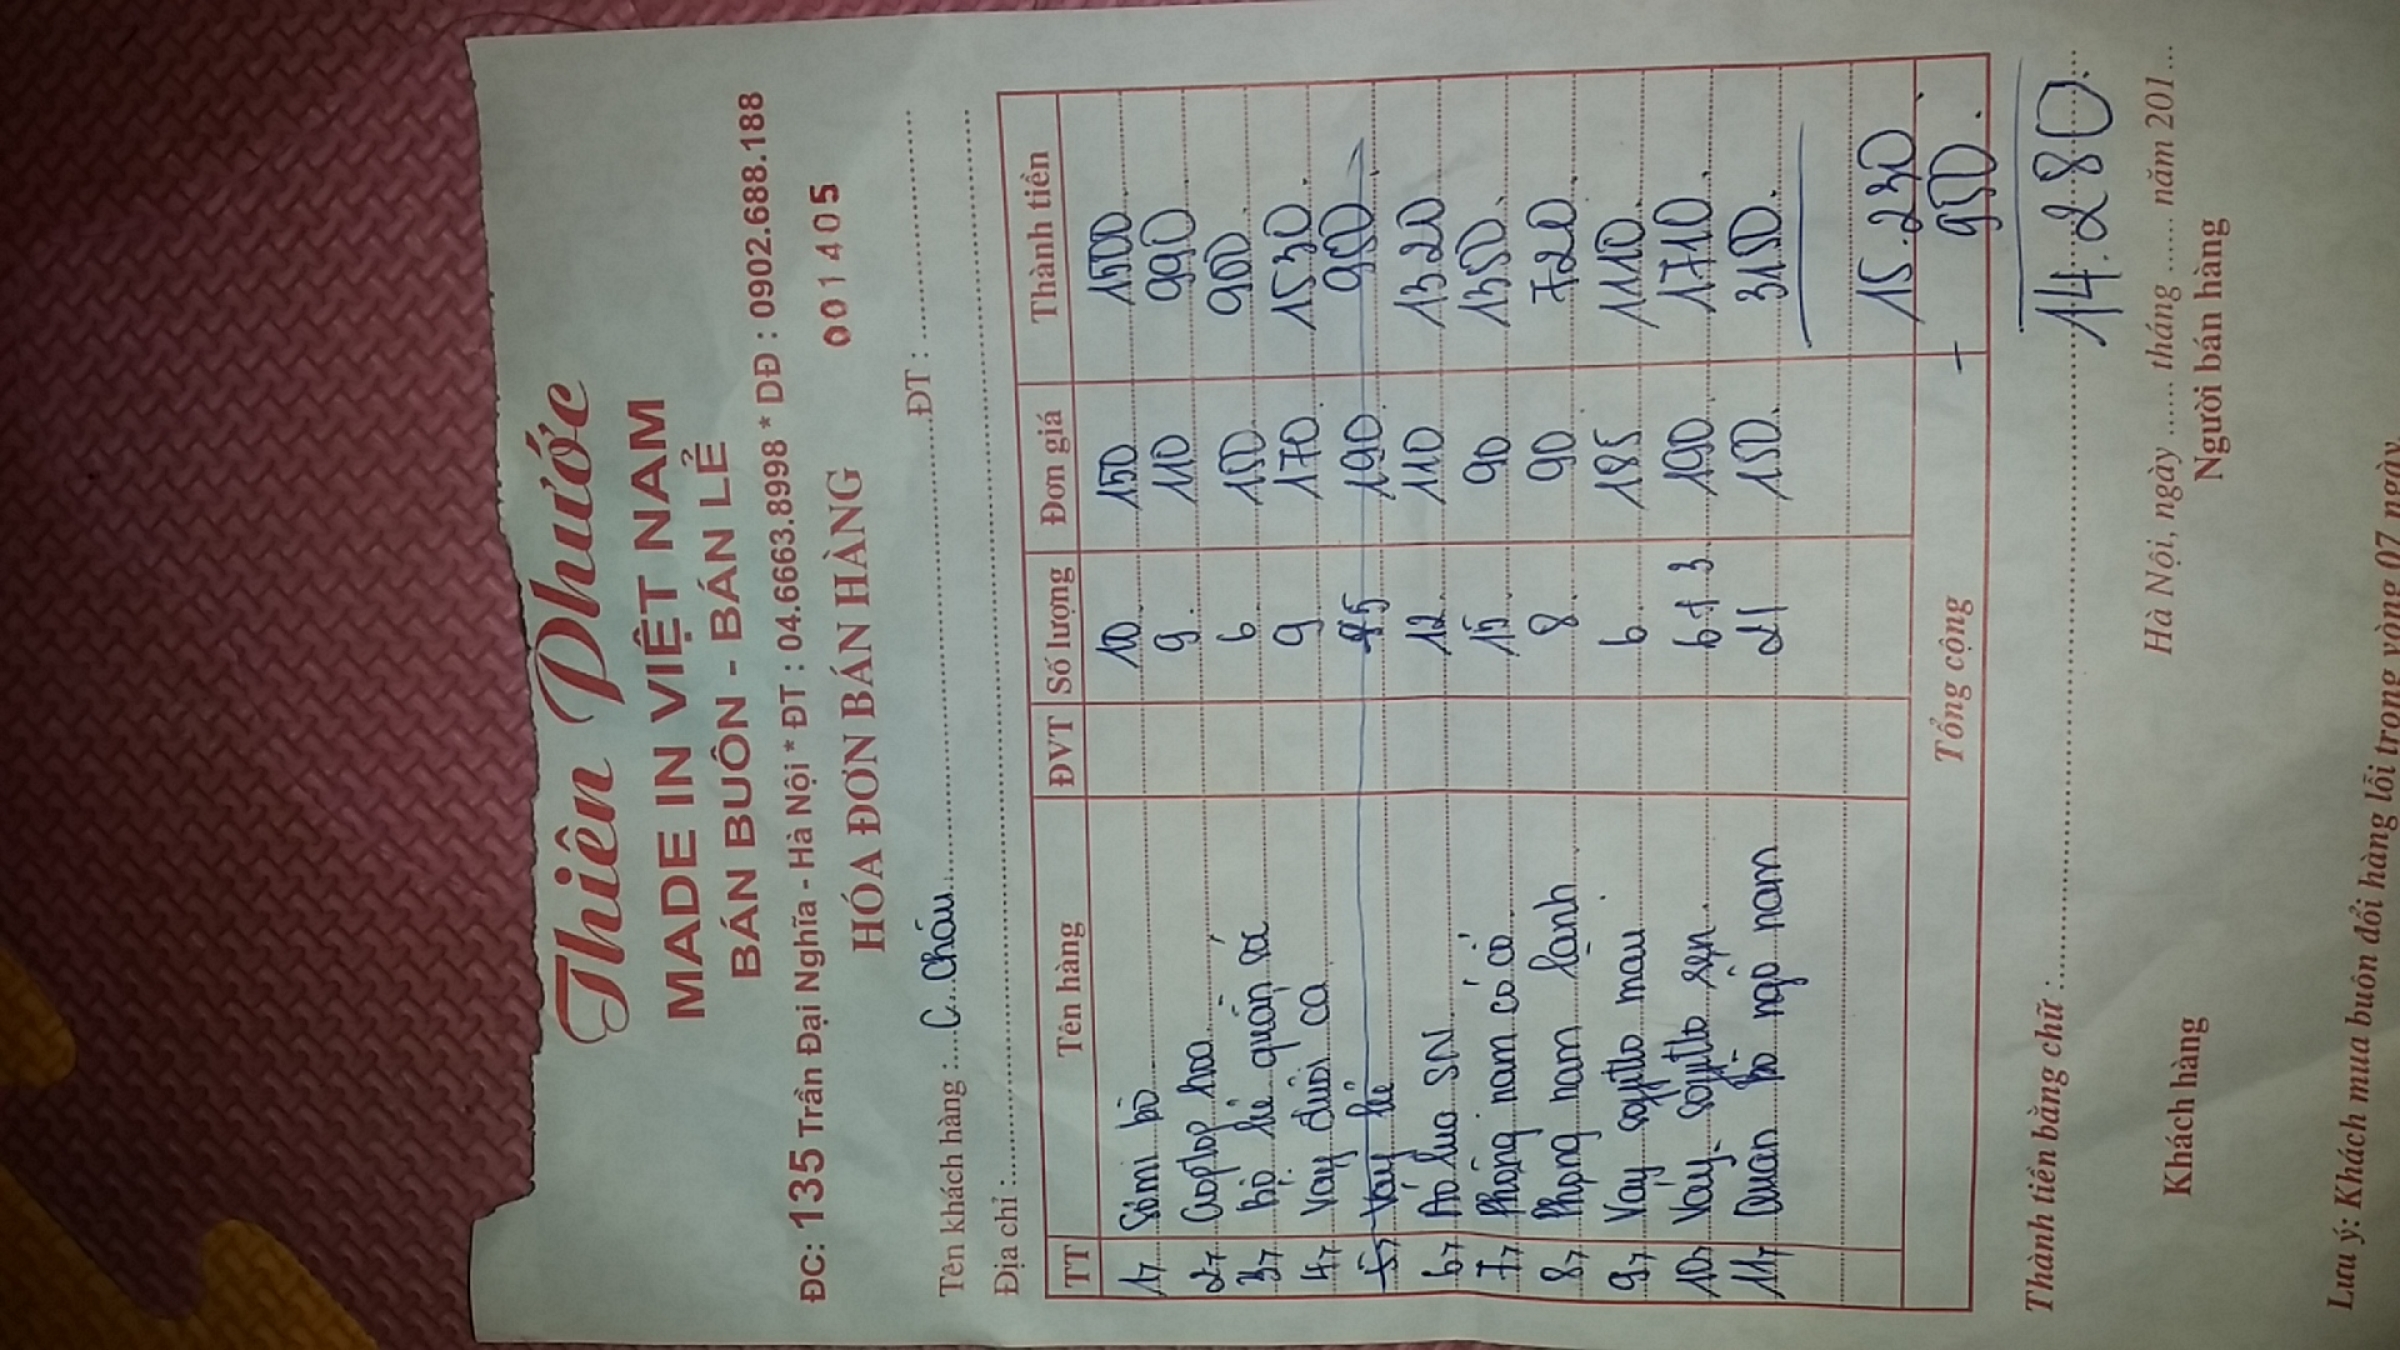 Thiên Phước
MADE IN VIỆT NAM
BÁN BUÔN - BÁN LẺ
ĐC: 135 Trần Đại Nghĩa - Hà Nội * ĐT : 04.6663.8998 * DĐ : 0902.688.188
HÓA ĐƠN BÁN HÀNG 001405
Tên khách hàng : C. Châu ĐT :
Địa chỉ :
TT Tên hàng ĐVT Số lượng Đơn giá Thành tiền
1, Sơmi bò 10 150 1500
2, Croptop hoa 9 110 990
3, Bộ hè quần 6 150 900
4, Váy đuôi cá 9 170 1530
5, Váy 5 190 950
6, Áo lua SN 12 110 1320
7, Phông nam có cổ 15 90 1350
8, Phông nam lạnh 8 90 720
9, Váy màu 6 185 1110
10, Váy sẹn 6+3 190 1710
11, Quần bò ngố nam 21 150 3150
15.230
Tổng cộng - 950
14.280
Thành tiền bằng chữ :
Hà Nội, ngày ...... tháng ...... năm 201...
Khách hàng Người bán hàng
Lưu ý: Khách mua buôn đổi hàng lỗi trong vòng 07 ngày